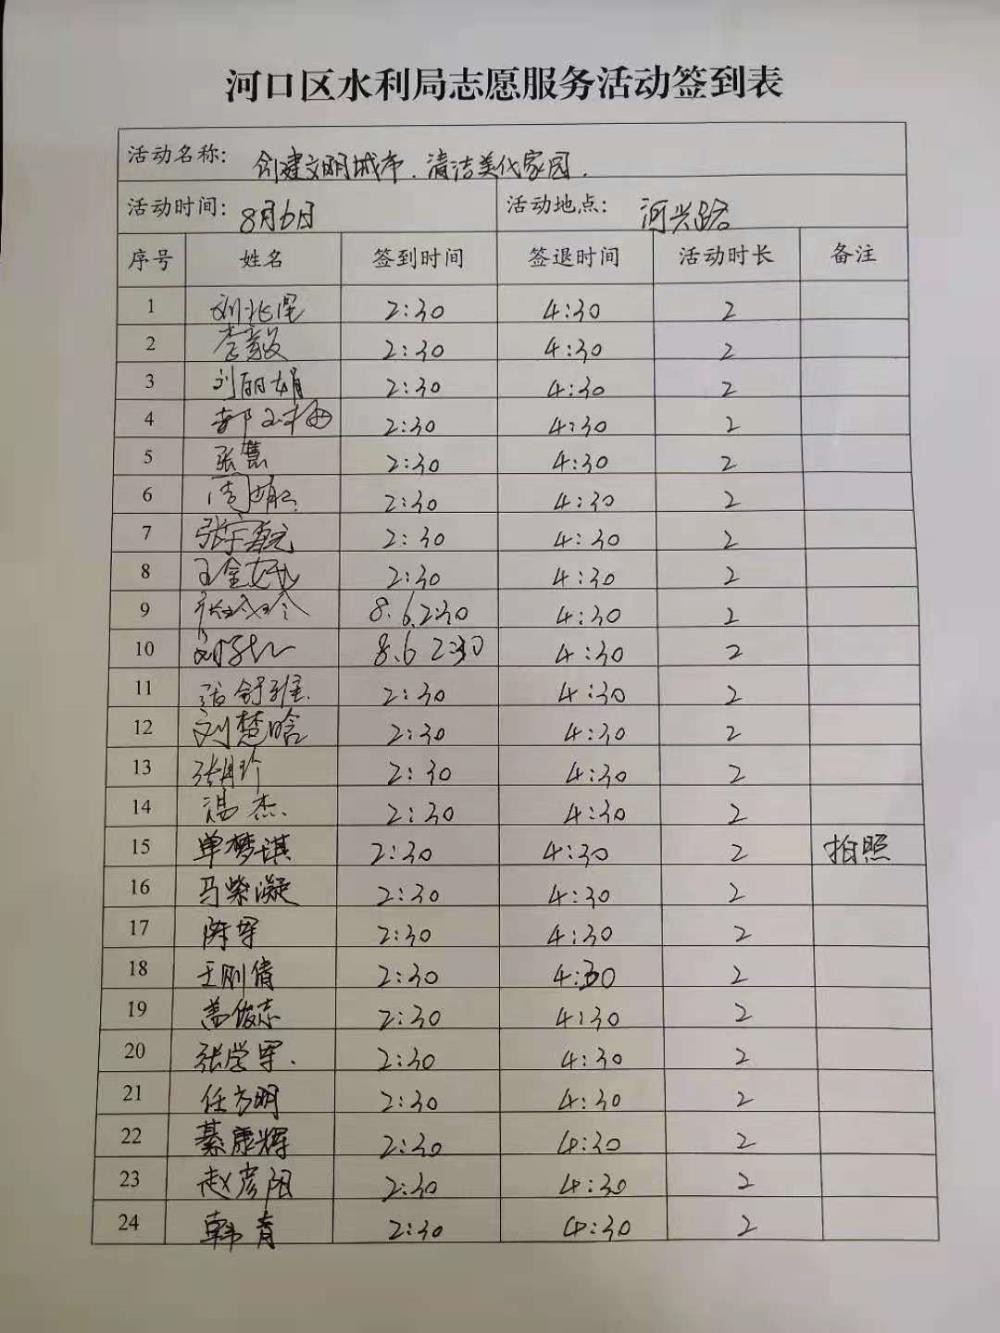 河口区水利局志愿服务活动签到表
活动名称: 创建文明城市.清洁美化家园.
活动时间: 8月6日 活动地点: 河兴路
序号 姓名 签到时间 签退时间 活动时长 备注
1 2:30 4:30 2
2 李毅 2:30 4:30 2
3 刘丽娟 2:30 4:30 2
4 2:30 4:30 2
5 张慧 2:30 4:30 2
6 周娟 2:30 4:30 2
7 2:30 4:30 2
8 2:30 4:30 2
9 8.6.2:30 4:30 2
10 8.6 2:30 4:30 2
11 2:30 4:30 2
12 刘楚晗 2:30 4:30 2
13 张月珍 2:30 4:30 2
14 汤杰. 2:30 4:30 2
15 单梦琪 2:30 4:30 2 拍照
16 马紫凝 2:30 4:30 2
17 陈军 2:30 4:30 2
18 王刚倩 2:30 4:30 2
19 盖俊志 2:30 4:30 2
20 张学军. 2:30 4:30 2
21 任方明 2:30 4:30 2
22 綦虎辉 2:30 4:30 2
23 赵彦阳 2:30 4:30 2
24 韩青 2:30 4:30 2